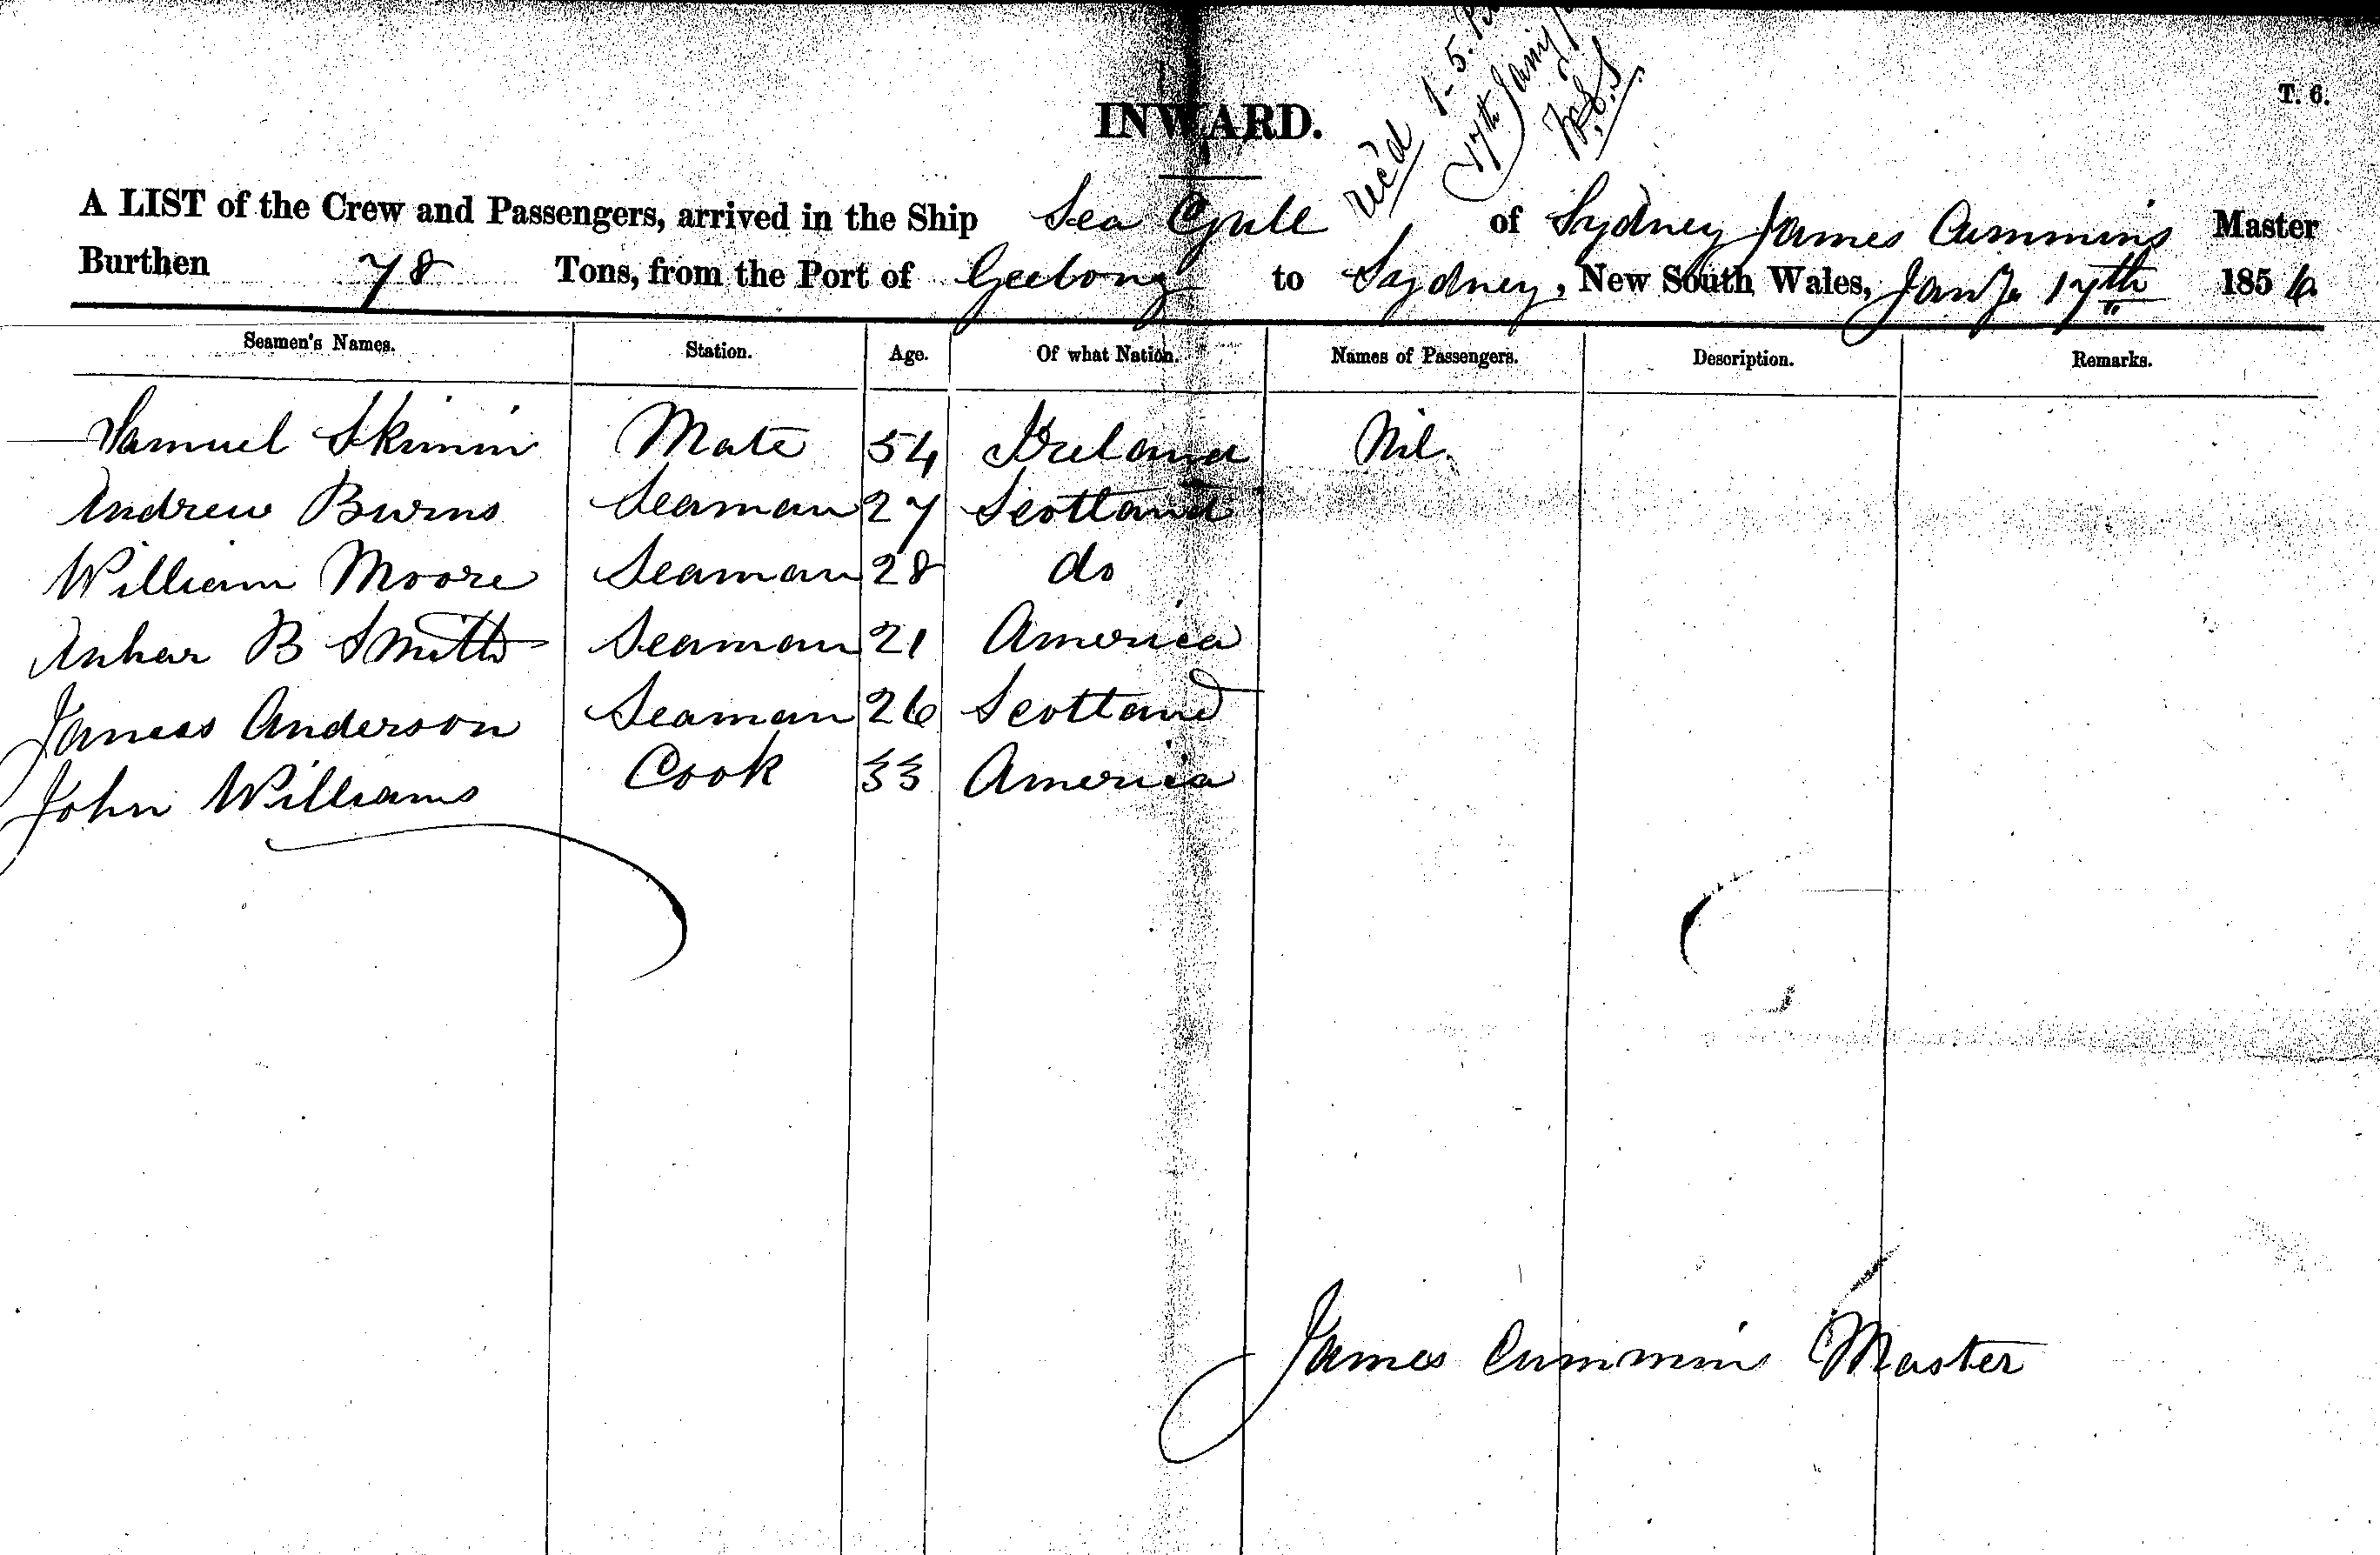 INWARD.
T. 6.
rec'd 1-5. P.
17th Jany
A LIST of the Crew and Passengers, arrived in the Ship Sea Gull of Sydney James Cummins Master
Burthen 78 Tons, from the Port of Geelong to Sydney, New South Wales, Jany 17th 1856
Seamen's Names. Station. Age. Of what Nation. Names of Passengers. Description. Remarks.
Samuel Skimin Mate 54 Ireland Nil.
Andrew Burns Seaman 27 Scotland
William Moore Seaman 28 do
B Smith Seaman 21 America
James Anderson Seaman 26 Scotland
John Williams Cook 33 America
James Cummins Master